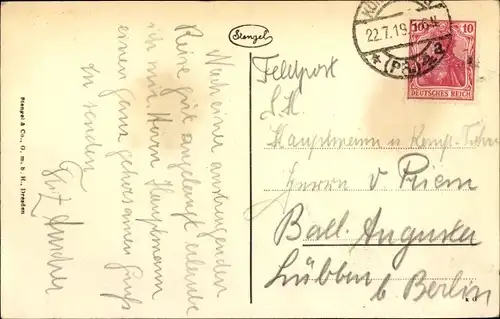 Stengel
Stengel & Co., G. m. b. H., Dresden
22.7.19.
* (Pr.) 2 a
10 10
DEUTSCHES REICH
Nach einer anstrengenden
Reise gut angelangt erlaube
ich mir, Herrn Hauptmann
einen ganz gehorsamen Gruß
zu senden
Fritz
Feldpost
S. H.
Hauptmann u Komp.
Herrn v Priem
Ball. Augusta
Lübben
b Berlin